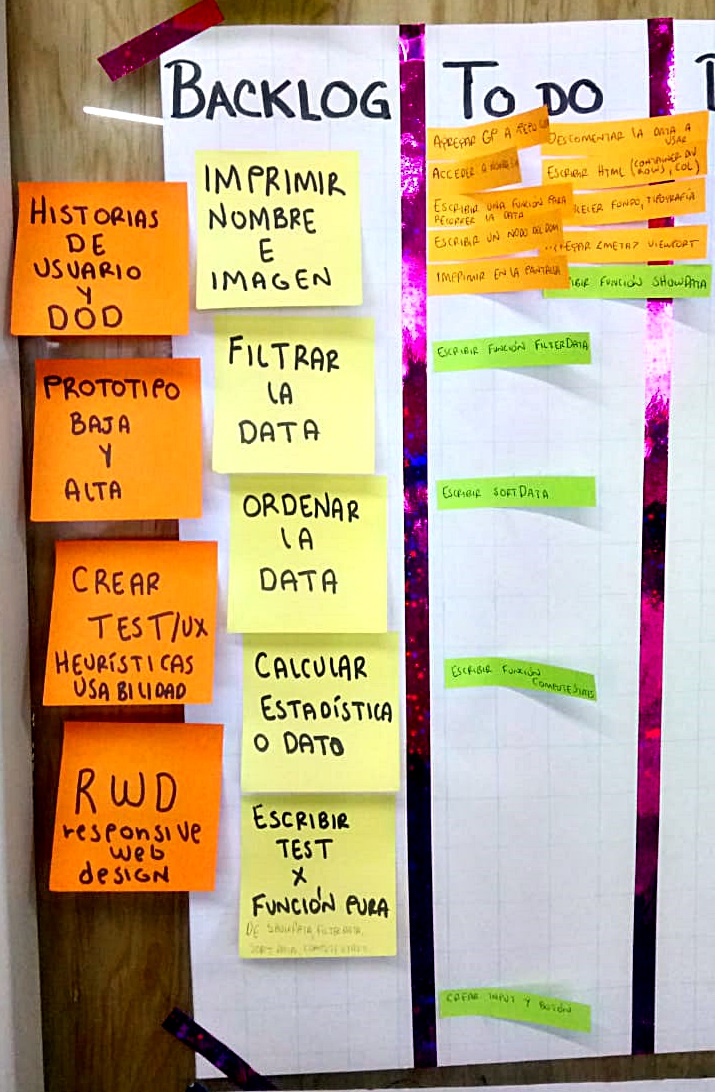 BACKLOG
TO DO
HISTORIAS
DE
USUARIO
Y
DOD
PROTOTIPO
BAJA
Y
ALTA
CREAR
TEST/UX
HEURÍSTICAS
USABILIDAD
RWD
responsive
web
design
IMPRIMIR
NOMBRE
E
IMAGEN
FILTRAR
LA
DATA
ORDENAR
LA
DATA
CALCULAR
ESTADÍSTICA
O DATO
ESCRIBIR
TEST
X
FUNCIÓN PURA
DE SHOWDATA, FILTERDATA,
AGREGAR GP A
ACCEDER A
ESCRIBIR UNA FUNCIÓN PARA
RECORRER LA DATA
ESCRIBIR UN NODO DEL DOM
IMPRIMIR EN LA PANTALLA
DESCOMENTAR LA DATA A
USAR
ESCRIBIR HTML (CONTAINER DIV
ROWS, COL)
FONDO, TIPOGRAFÍA
<META> VIEWPORT
FUNCIÓN SHOWDATA
ESCRIBIR FUNCIÓN FILTERDATA
ESCRIBIR SORTDATA
ESCRIBIR FUNCIÓN
COMPUTESTATS
CREAR INPUT Y BOTÓN